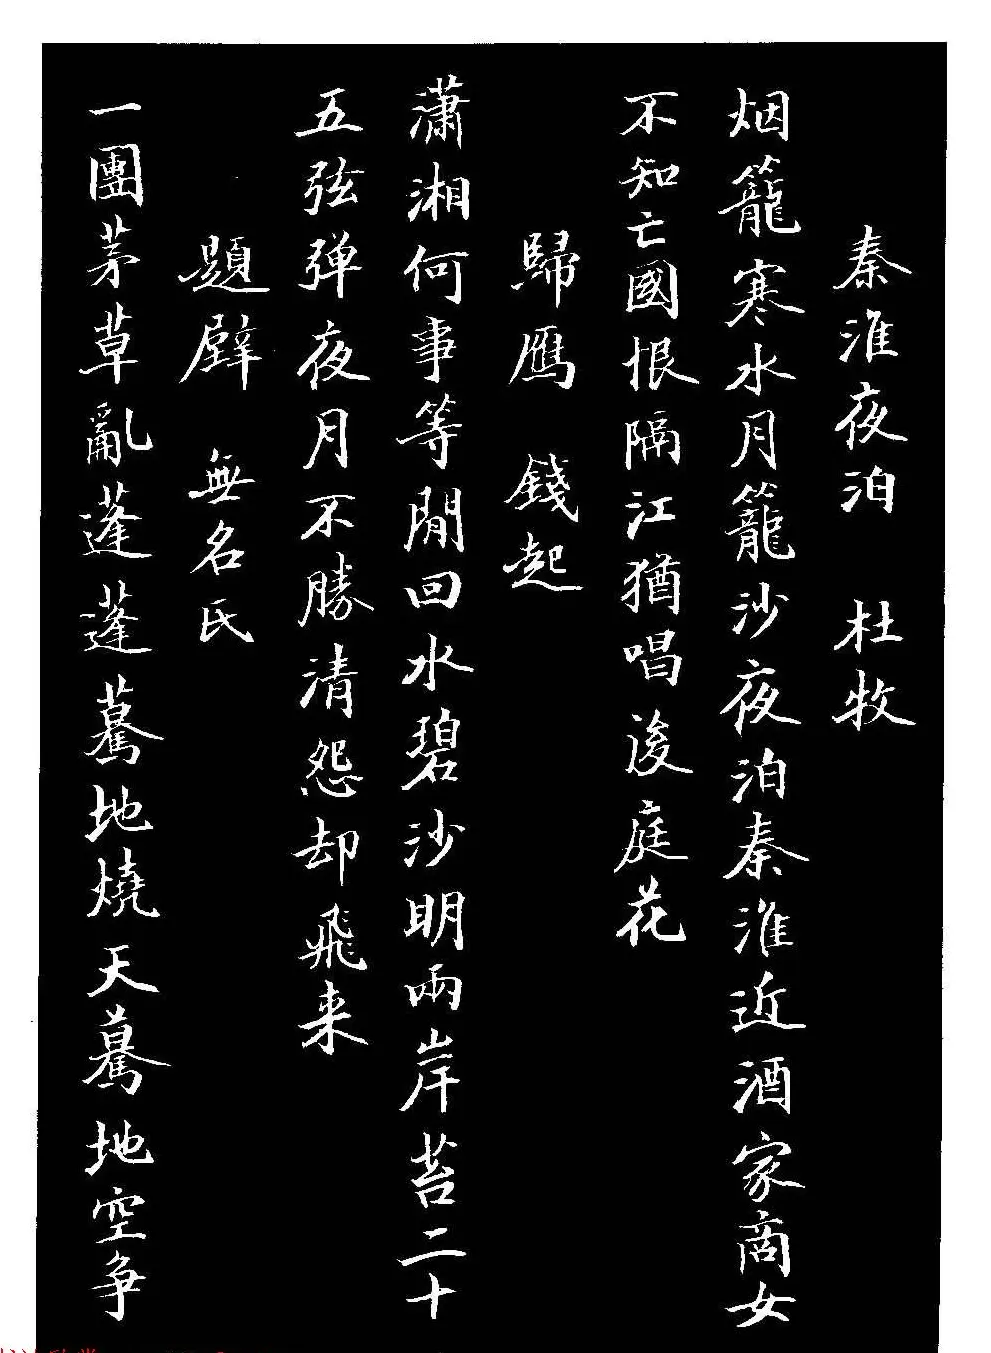 秦淮夜泊 杜牧
烟籠寒水月籠沙夜泊秦淮近酒家商女
不知亡國恨隔江猶唱後庭花
歸鴈 錢起
瀟湘何事等閒回水碧沙明兩岸苔二十
五弦弹夜月不勝清怨却飛来
題壁 無名氏
一團茅草亂蓬蓬驀地燒天驀地空争